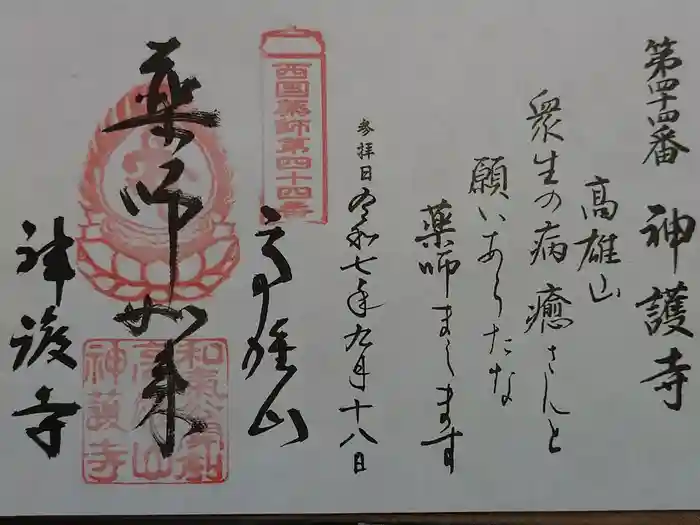 第四十四番 神護寺
高雄山
衆生の病癒さんと
願いあらたな
薬師まします
参拝日 令和七年九月十八日
西国薬師第四十四番
高雄山
薬師如来
神護寺
和氣公
高雄山
神護寺